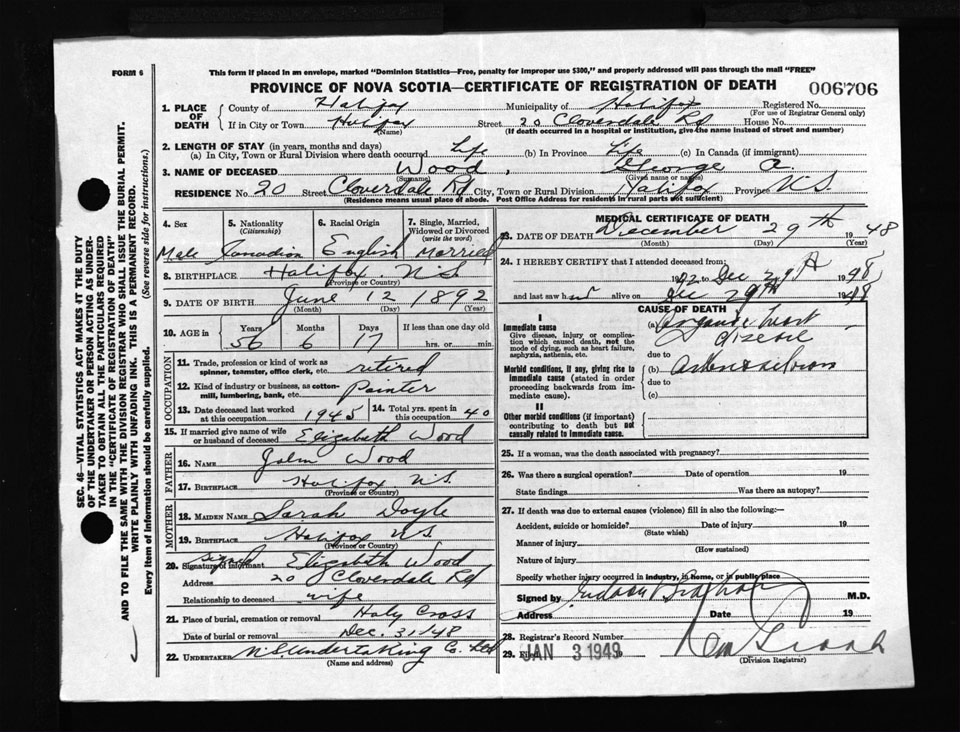 FORM 6
This form if placed in an envelope, marked "Dominion Statistics—Free, penalty for improper use $300," and properly addressed will pass through the mail "FREE"
PROVINCE OF NOVA SCOTIA—CERTIFICATE OF REGISTRATION OF DEATH
006706
1. PLACE OF DEATH
County of Halifax Municipality of Halifax Registered No.
(For use of Registrar General only)
If in City or Town Halifax Street 20 Cloverdale Rd House No.
(Name) (If death occurred in a hospital or institution, give the name instead of street and number)
2. LENGTH OF STAY (in years, months and days)
(a) In City, Town or Rural Division where death occurred Life (b) In Province Life (c) In Canada (if immigrant)
3. NAME OF DECEASED Wood, George A
(Surname) (Given name or names)
RESIDENCE No. 20 Street Cloverdale Rd City, Town or Rural Division Halifax Province N.S.
(Residence means usual place of abode. Post Office Address for residents in rural parts not sufficient)
4. Sex 5. Nationality (Citizenship) 6. Racial Origin 7. Single, Married, Widowed or Divorced (write the word)
Male Canadian English Married
8. BIRTHPLACE Halifax N.S.
(Province or Country)
9. DATE OF BIRTH June 12 1892
(Month) (Day) (Year)
10. AGE in Years Months Days If less than one day old
56 6 17 hrs. or min.
OCCUPATION
11. Trade, profession or kind of work as spinner, teamster, office clerk, etc. retired
12. Kind of industry or business, as cotton-mill, lumbering, bank, etc. Painter
13. Date deceased last worked at this occupation 1945 14. Total yrs. spent in this occupation 40
15. If married give name of wife or husband of deceased Elizabeth Wood
FATHER
16. NAME John Wood
17. BIRTHPLACE Halifax N.S.
(Province or Country)
MOTHER
18. MAIDEN NAME Sarah Doyle
19. BIRTHPLACE Halifax N.S.
(Province or Country)
20. Signature of informant signed Elizabeth Wood
Address 20 Cloverdale Rd
Relationship to deceased wife
21. Place of burial, cremation or removal Holy Cross
Date of burial or removal Dec. 31/48
22. UNDERTAKER N.S. Undertaking Co. Ltd
(Name and address)
MEDICAL CERTIFICATE OF DEATH
23. DATE OF DEATH December 29th 1948
(Month) (Day) (Year)
24. I HEREBY CERTIFY that I attended deceased from:
to Dec 29th 1948
and last saw h alive on Dec 29th 1948
CAUSE OF DEATH
I
Immediate cause
Give disease, injury or complication which caused death, not the mode of dying, such as heart failure, asphyxia, asthenia, etc.
(a) Organic heart disease
due to
Morbid conditions, if any, giving rise to immediate cause (stated in order proceeding backwards from immediate cause).
(b)
due to
(c)
II
Other morbid conditions (if important) contributing to death but not causally related to immediate cause.
25. If a woman, was the death associated with pregnancy?
26. Was there a surgical operation? Date of operation 19
State findings Was there an autopsy?
27. If death was due to external causes (violence) fill in also the following:—
Accident, suicide or homicide? Date of injury 19
(State which)
Manner of injury
(How sustained)
Nature of injury
Specify whether injury occurred in industry, in home, or in public place
Signed by M.D.
Address Date 19
28. Registrar's Record Number
29. Filed JAN 3 1949
(Division Registrar)
SEC. 46—VITAL STATISTICS ACT MAKES IT THE DUTY
OF THE UNDERTAKER OR PERSON ACTING AS UNDER-
TAKER TO OBTAIN ALL THE PARTICULARS REQUIRED
IN THE "CERTIFICATE OF REGISTRATION OF DEATH"
AND TO FILE THE SAME WITH THE DIVISION REGISTRAR WHO SHALL ISSUE THE BURIAL PERMIT.
WRITE PLAINLY WITH UNFADING INK. THIS IS A PERMANENT RECORD.
Every item of information should be carefully supplied. (See reverse side for instructions.)